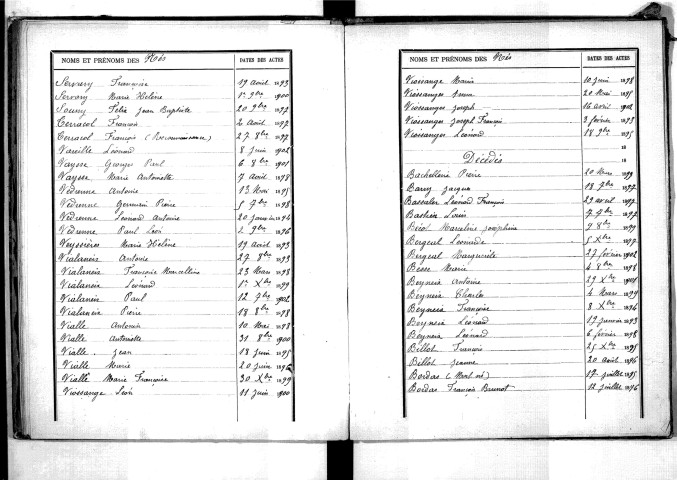 NOMS ET PRÉNOMS DES Nés DATES DES ACTES
Servery Françoise 19 avril 1893
Servory Marie Hélène 1er 9bre 1900
Soussy Félix Jean Baptiste 20 9bre 1897
Terracol François 2 août 1897
Terracol François (Reconnaissance) 27 8bre 1897
Vareille Léonard 8 Juin 1902
Vaysse Georges Paul 6 8bre 1901
Vaysse Marie Antoinette 7 avril 1898
Védrenne Antoine 13 Nov 1895
Védrenne Germain Pierre 5 7bre 1898
Védrenne Léonard Antoine 20 Janvier 1894
Védrenne Paul Léon 2 9bre 1896
Veyssières Marie Hélène 19 avril 1893
Vialaneix Antonie 27 8bre 1893
Vialaneix Françoise Marcelline 23 Mars 1898
Vialaneix Léonard 1er Xbre 1899
Vialaneix Paul 12 7bre 1902
Vialaneix Pierre 18 8bre 1898
Vialle Antonin 10 Mai 1893
Vialle Antoinette 31 8bre 1900
Vialle Jean 18 Juin 1895
Vialle Marie 20 Juin 1896
Vialle Marie Françoise 30 Xbre 1899
Viossange Léon 11 Juin 1900
NOMS ET PRÉNOMS DES Nés DATES DES ACTES
Viossange Marie 10 Juin 1898
Viossanges 20 Mai 1895
Viossanges Joseph 16 avril 1902
Viossanges Joseph François 3 février 1893
Viossanges Léonard 18 9bre 1895
18
Décédés 18
Bachellerie Pierre 20 Mars 1899
Barry Jacques 18 7bre 1897
Bassaler Léonard François 29 avril 1897
Bashien Louis 7 9bre 1897
Béol Marceline Joséphine 9 8bre 1899
Bergeul Léonarde 5 Xbre 1897
Bergeul Marguerite 27 février 1902
Besse Marie 4 8bre 1898
Beyneix Antoine 29 Xbre 1901
Beyneix Charles 4 Mars 1899
Beyneix Françoise 8 Xbre 1894
Beyneix Léonard 19 Janvier 1893
Beyneix Léonard 6 février 1898
Billot François 25 Xbre 1895
Billot Jeanne 20 août 1896
Bordas (Mort né) 17 Juillet 1895
Bordas François Brunot 12 Juillet 1896